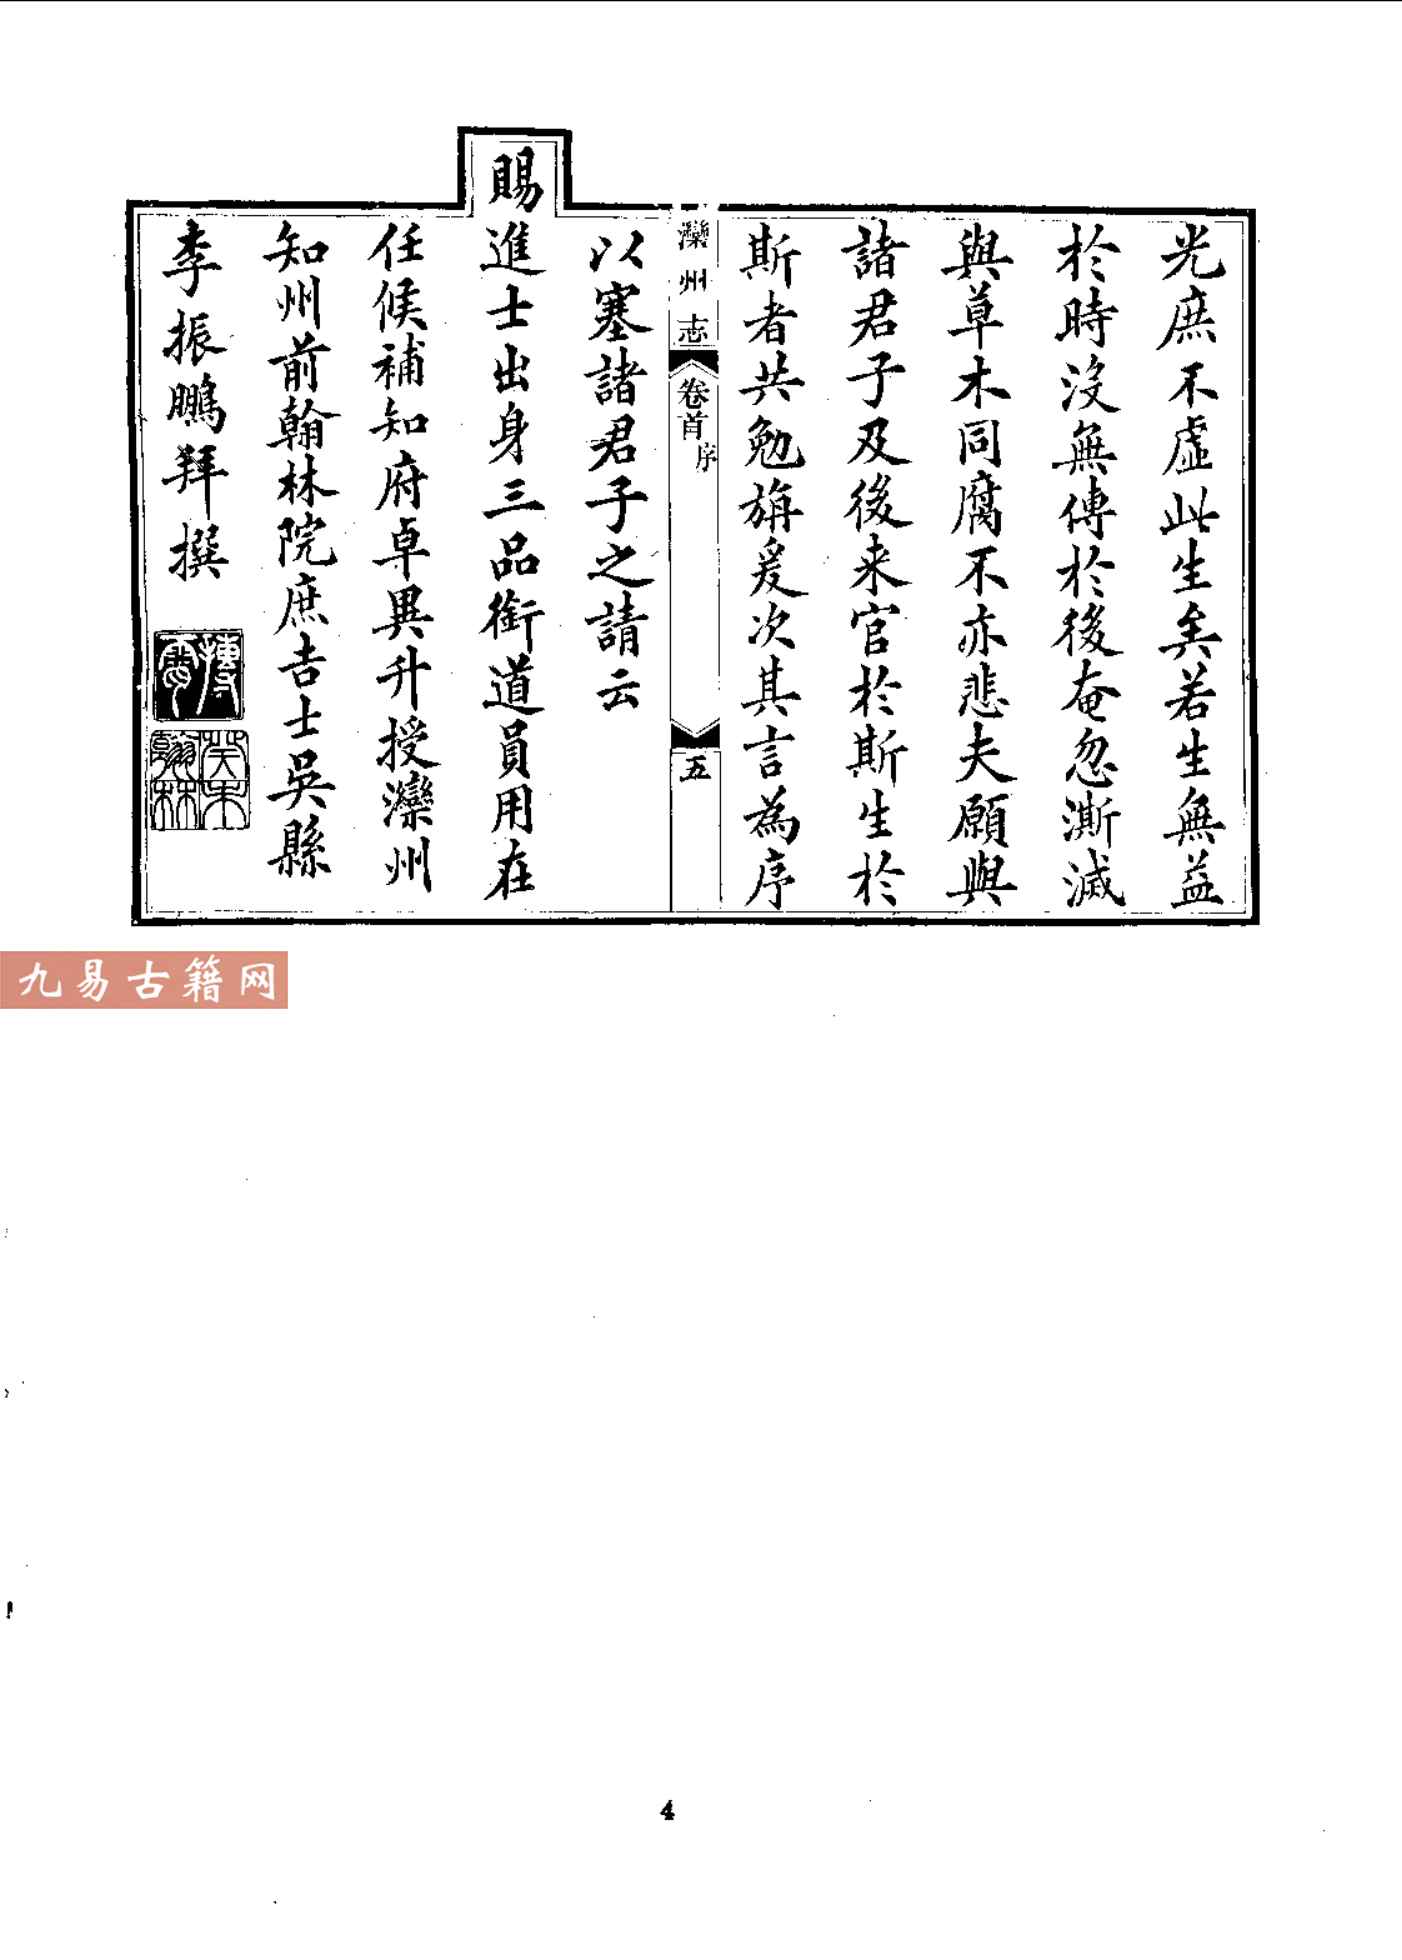 光庶不虛此生矣若生無益
於時沒無傳於後奄忽澌滅
與草木同腐不亦悲夫願與
諸君子及後来官於斯生於
斯者共勉旃爰次其言為序
灤州志
卷首
序
五
以塞諸君子之請云
賜進士出身三品銜道員用在
任候補知府卓異升授灤州
知州前翰林院庶吉士吳縣
李振鵬拜撰
摶霄
癸未翰林
九易古籍网
4